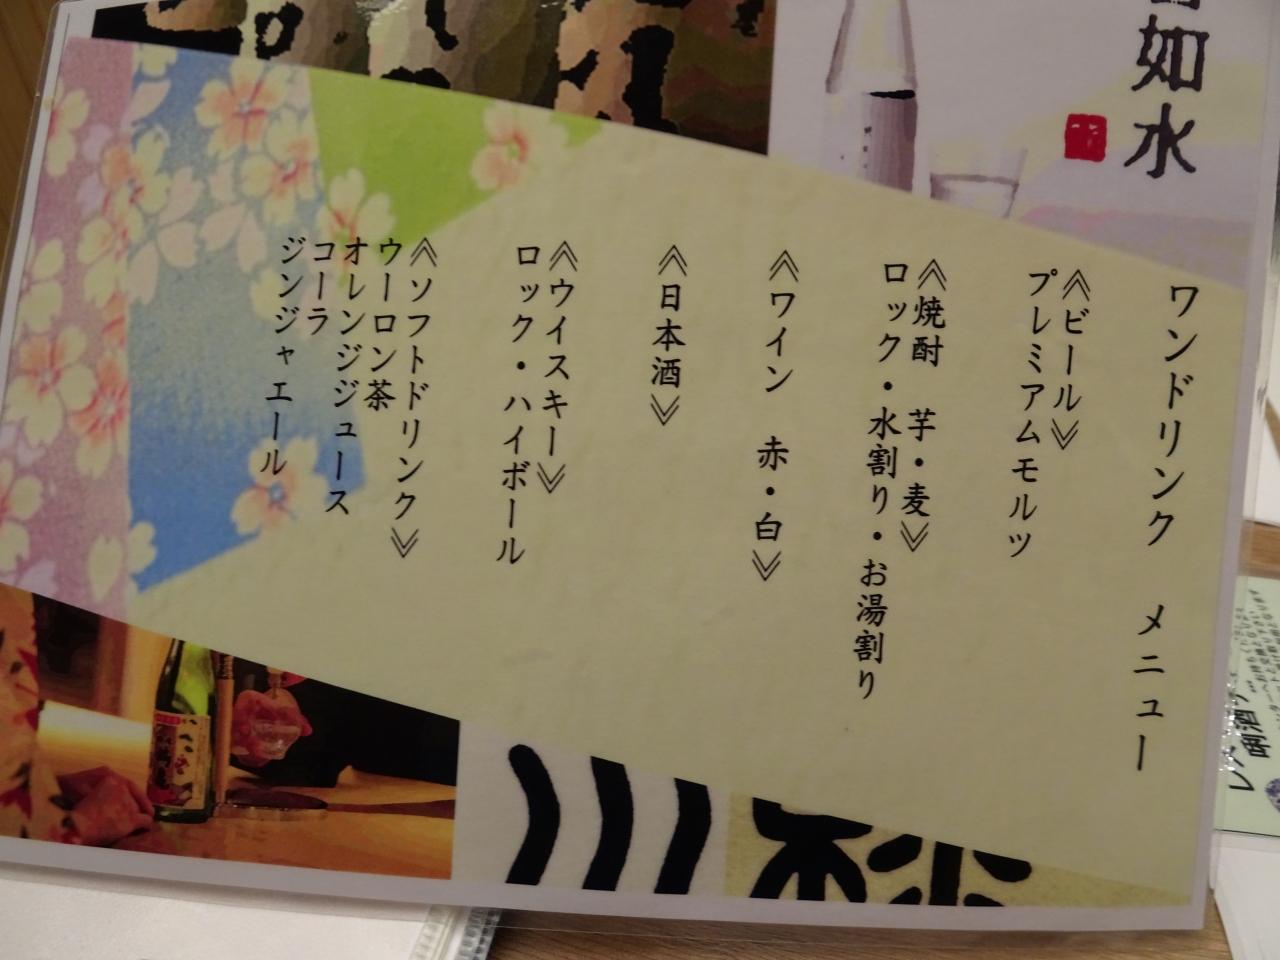 如水
ワンドリンク メニュー
≪ビール≫
プレミアムモルツ
≪焼酎 芋・麦≫
ロック・水割り・お湯割り
≪ワイン 赤・白≫
≪日本酒≫
≪ウイスキー≫
ロック・ハイボール
≪ソフトドリンク≫
ウーロン茶
オレンジジュース
コーラ
ジンジャエール